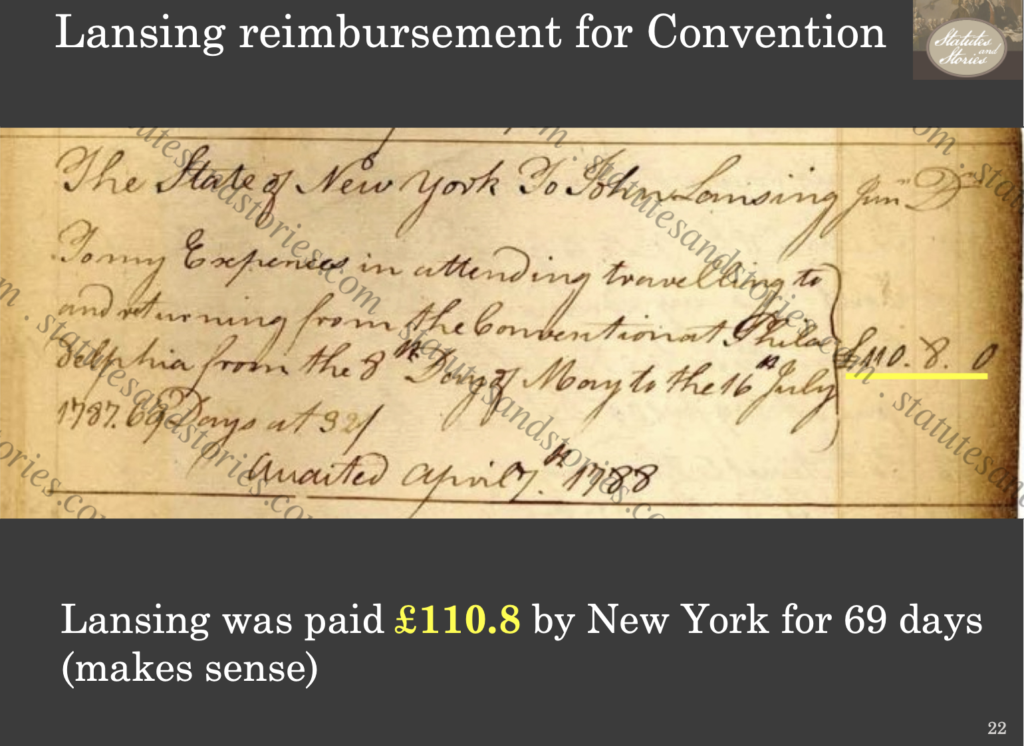 Lansing reimbursement for Convention
Statutes
and
Stories
The State of New York To John Lansing Junr Dr
To my Expences in attending travelling to
and returning from the Convention at Phila
delphia from the 8th Day of May to the 16th July
1787. 69 Days at 32/
£110. 8. 0
Audited April 7th 1788
Lansing was paid £110.8 by New York for 69 days
(makes sense)
22